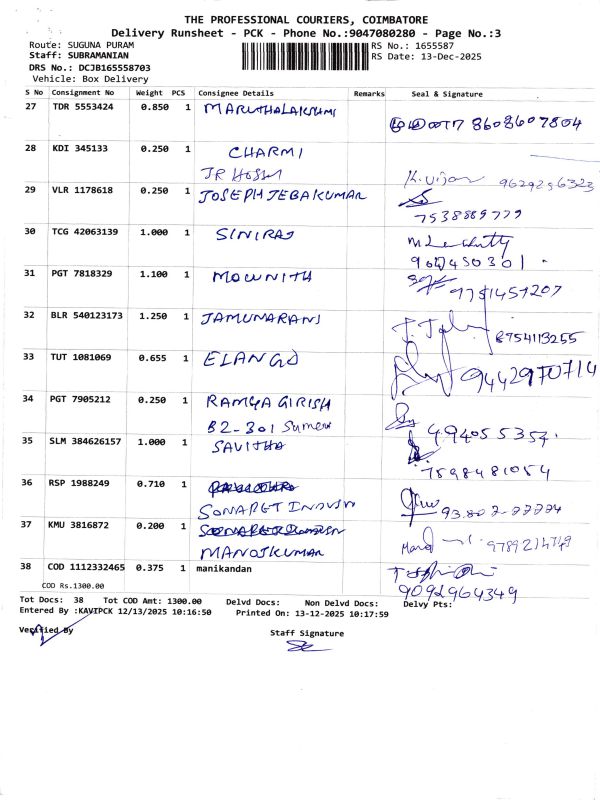 THE PROFESSIONAL COURIERS, COIMBATORE
Delivery Runsheet - PCK - Phone No.:9047080280 - Page No.:3
Route: SUGUNA PURAM
RS No.: 1655587
Staff: SUBRAMANIAN
RS Date: 13-Dec-2025
DRS No.: DCJB165558703
Vehicle: Box Delivery
S No Consignment No Weight PCS Consignee Details Remarks Seal & Signature
27 TDR 5553424 0.850 1 MARUTHALAKSHMI
8608607804
28 KDI 345133 0.250 1 CHARMI
JR HOSM
K. Vijay 9629296323
29 VLR 1178618 0.250 1 JOSEPH JEBAKUMAR
7538889779
30 TCG 42063139 1.000 1 SINIRAJ
31 PGT 7818329 1.100 1 MOWNITH
9751457207
32 BLR 540123173 1.250 1 JAMUNARANI
8754113255
33 TUT 1081069 0.655 1 ELANGO
9442970714
34 PGT 7905212 0.250 1 RAMYA GIRISH
B2-301 Sumeru
35 SLM 384626157 1.000 1 SAVITHA
7598481054
36 RSP 1988249 0.710 1
SONARET INDUSM
37 KMU 3816872 0.200 1
MANOJKUMAR
9789214749
38 COD 1112332465 0.375 1 manikandan
COD Rs.1300.00
9092964349
Tot Docs: 38 Tot COD Amt: 1300.00 Delvd Docs: Non Delvd Docs: Delvy Pts:
Entered By :KAVIPCK 12/13/2025 10:16:50 Printed On: 13-12-2025 10:17:59
Verified By
Staff Signature